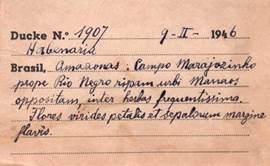 Ducke N.º 1907 9-II-1946
Habenaria
Brasil, Amazonas: Campo Marajozinho
prope Rio Negro ripam urbi Manaos
oppositam, inter herbas frequentissima.
Flores virides petalis et sepalorum margine
flavis.